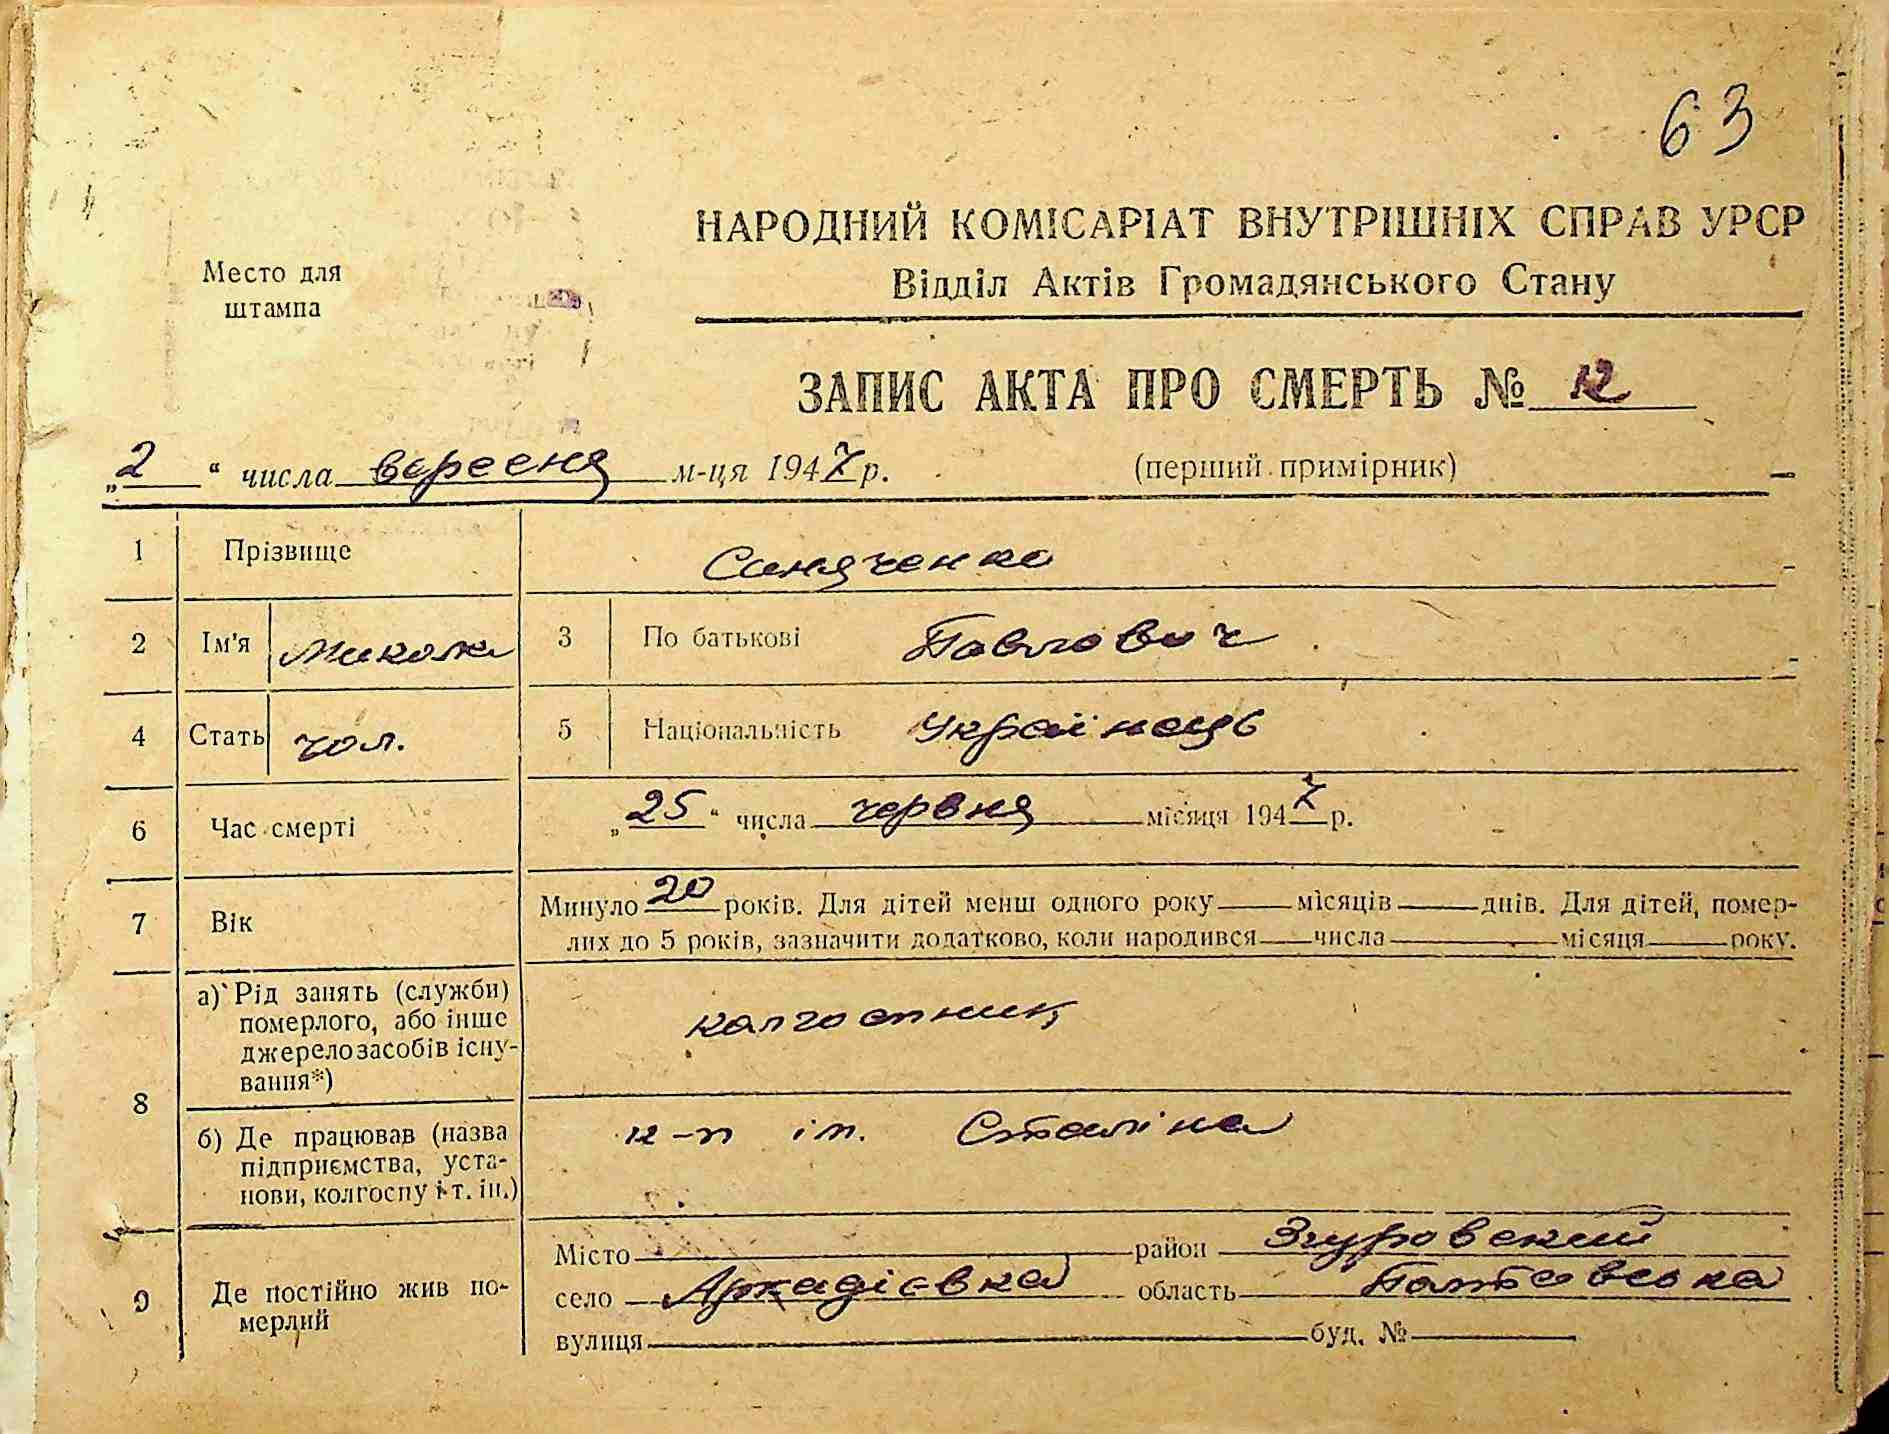 63
НАРОДНИЙ КОМІСАРІАТ ВНУТРІШНІХ СПРАВ УРСР
Відділ Актів Громадянського Стану
Место для
штампа
ЗАПИС АКТА ПРО СМЕРТЬ № 12
„2“ числа вересня м-ця 1947 р. (перший примірник)
1 Прізвище Синяченко
2 Ім'я Микола 3 По батькові Павлович
4 Стать чол. 5 Національність Українець
6 Час смерті „25“ числа червня місяця 1947 р.
7 Вік Минуло 20 років. Для дітей менш одного року місяців днів. Для дітей, помер-
лих до 5 років, зазначити додатково, коли народився числа місяця року.
8 а) Рід занять (служби)
померлого, або інше
джерело засобів існу-
вання*) колгоспник
б) Де працював (назва
підприємства, уста-
нови, колгоспу і т. ін.) к-п ім. Сталіна
9 Де постійно жив по-
мерлий
Місто район Згуровский
село Аркадієвка область Полтавська
вулиця буд. №